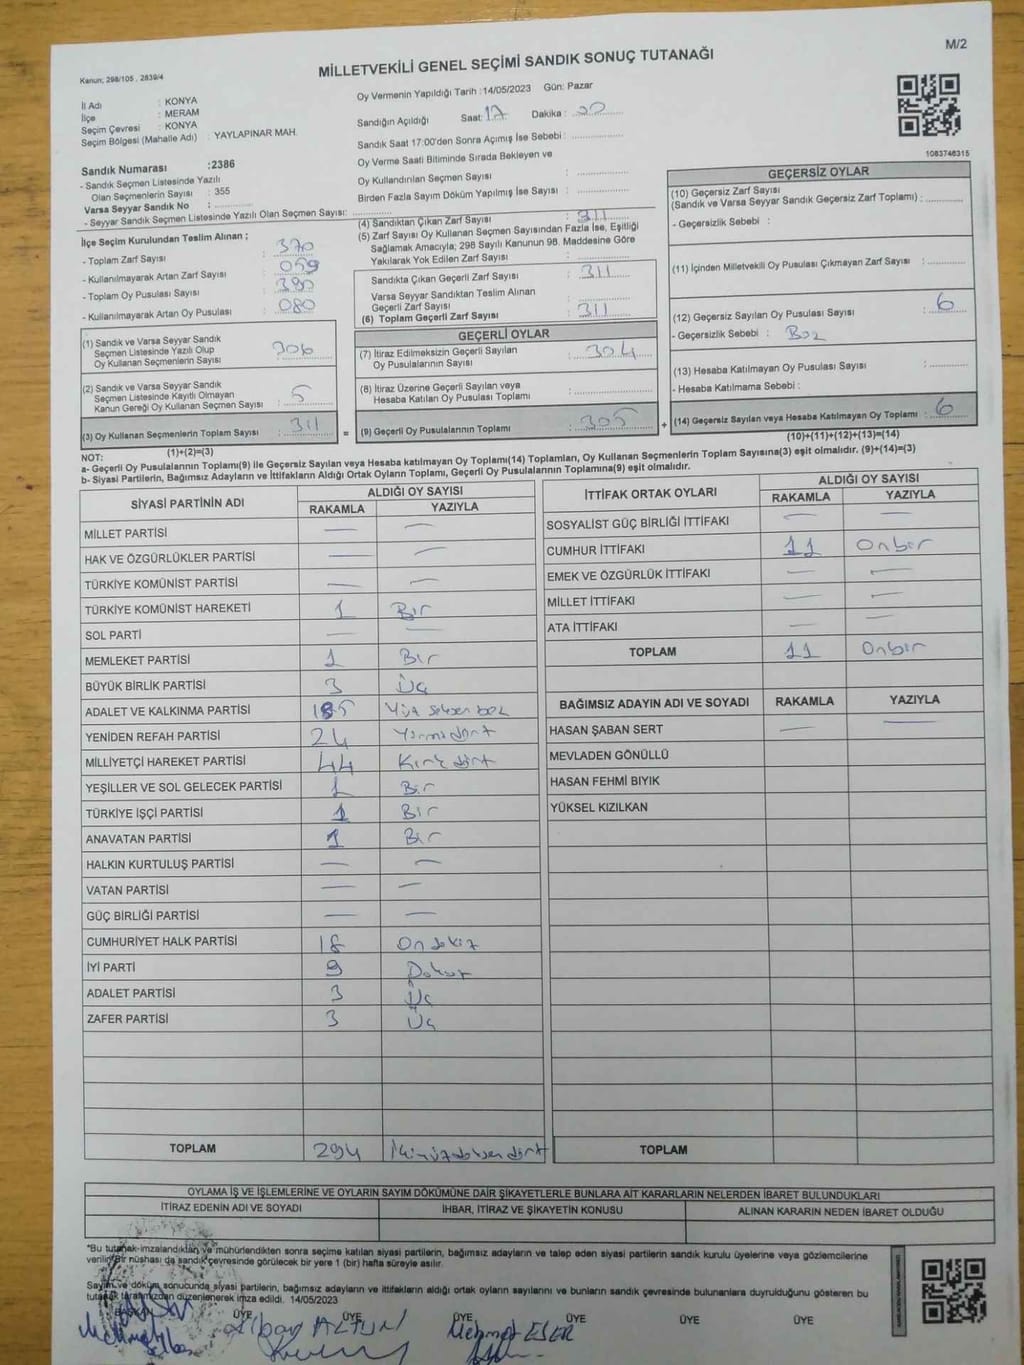 M/2
Kanun; 298/105 , 2839/4
MİLLETVEKİLİ GENEL SEÇİMİ SANDIK SONUÇ TUTANAĞI
İl Adı : KONYA
İlçe : MERAM
Seçim Çevresi : KONYA
Seçim Bölgesi (Mahalle Adı) : YAYLAPINAR MAH.
Sandık Numarası :2386
- Sandık Seçmen Listesinde Yazılı
Olan Seçmenlerin Sayısı : 355
Varsa Seyyar Sandık No :
- Seyyar Sandık Seçmen Listesinde Yazılı Olan Seçmen Sayısı:
Oy Vermenin Yapıldığı Tarih :14/05/2023 Gün: Pazar
Sandığın Açıldığı Saat:17 Dakika : 20
Sandık Saat 17:00'den Sonra Açımış İse Sebebi :
Oy Verme Saati Bitiminde Sırada Bekleyen ve
Oy Kullandırılan Seçmen Sayısı :
Birden Fazla Sayım Döküm Yapılmış İse Sayısı :
1083746315
İlçe Seçim Kurulundan Teslim Alınan ;
- Toplam Zarf Sayısı : 370
- Kullanılmayarak Artan Zarf Sayısı : 059
- Toplam Oy Pusulası Sayısı : 390
- Kullanılmayarak Artan Oy Pusulası : 080
(1) Sandık ve Varsa Seyyar Sandık
Seçmen Listesinde Yazılı Olup
Oy Kullanan Seçmenlerin Sayısı : 306
(2) Sandık ve Varsa Seyyar Sandık
Seçmen Listesinde Kayıtlı Olmayan
Kanun Gereği Oy Kullanan Seçmen Sayısı : 5
(3) Oy Kullanan Seçmenlerin Toplam Sayısı : 311
(1)+(2)=(3)
(4) Sandıktan Çıkan Zarf Sayısı : 311
(5) Zarf Sayısı Oy Kullanan Seçmen Sayısından Fazla İse, Eşitliği
Sağlamak Amacıyla; 298 Sayılı Kanunun 98. Maddesine Göre
Yakılarak Yok Edilen Zarf Sayısı :
Sandıkta Çıkan Geçerli Zarf Sayısı : 311
Varsa Seyyar Sandıktan Teslim Alınan
Geçerli Zarf Sayısı :
(6) Toplam Geçerli Zarf Sayısı : 311
GEÇERLİ OYLAR
(7) İtiraz Edilmeksizin Geçerli Sayılan
Oy Pusulalarının Sayısı : 304
(8) İtiraz Üzerine Geçerli Sayılan veya
Hesaba Katılan Oy Pusulası Toplamı :
= (9) Geçerli Oy Pusulalarının Toplamı : 305
GEÇERSİZ OYLAR
(10) Geçersiz Zarf Sayısı
(Sandık ve Varsa Seyyar Sandık Geçersiz Zarf Toplamı) :
- Geçersizlik Sebebi :
(11) İçinden Milletvekili Oy Pusulası Çıkmayan Zarf Sayısı :
(12) Geçersiz Sayılan Oy Pusulası Sayısı : 6
- Geçersizlik Sebebi : Boz
(13) Hesaba Katılmayan Oy Pusulası Sayısı :
- Hesaba Katılmama Sebebi :
+ (14) Geçersiz Sayılan veya Hesaba Katılmayan Oy Toplamı : 6
(10)+(11)+(12)+(13)=(14)
NOT:
a- Geçerli Oy Pusulalarının Toplamı(9) ile Geçersiz Sayılan veya Hesaba katılmayan Oy Toplamı(14) Toplamları, Oy Kullanan Seçmenlerin Toplam Sayısına(3) eşit olmalıdır. (9)+(14)=(3)
b- Siyasi Partilerin, Bağımsız Adayların ve İttifakların Aldığı Ortak Oyların Toplamı, Geçerli Oy Pusulalarının Toplamına(9) eşit olmalıdır.
SİYASİ PARTİNİN ADI ALDIĞI OY SAYISI
RAKAMLA YAZIYLA
MİLLET PARTİSİ —  —
HAK VE ÖZGÜRLÜKLER PARTİSİ — —
TÜRKİYE KOMÜNİST PARTİSİ — —
TÜRKİYE KOMÜNİST HAREKETİ 1 Bir
SOL PARTİ — —
MEMLEKET PARTİSİ 1 Bir
BÜYÜK BİRLİK PARTİSİ 3 Üç
ADALET VE KALKINMA PARTİSİ 185 Yüz seksen beş
YENİDEN REFAH PARTİSİ 24 Yirmidört
MİLLİYETÇİ HAREKET PARTİSİ 44 Kırk dört
YEŞİLLER VE SOL GELECEK PARTİSİ 1 Bir
TÜRKİYE İŞÇİ PARTİSİ 1 Bir
ANAVATAN PARTİSİ 1 Bir
HALKIN KURTULUŞ PARTİSİ — —
VATAN PARTİSİ — —
GÜÇ BİRLİĞİ PARTİSİ — —
CUMHURİYET HALK PARTİSİ 18 Onsekiz
İYİ PARTİ 9 Dokuz
ADALET PARTİSİ 3 Üç
ZAFER PARTİSİ 3 Üç
TOPLAM 294 İkiyüzdoksandört
İTTİFAK ORTAK OYLARI ALDIĞI OY SAYISI
RAKAMLA YAZIYLA
SOSYALİST GÜÇ BİRLİĞİ İTTİFAKI — —
CUMHUR İTTİFAKI 11 Onbir
EMEK VE ÖZGÜRLÜK İTTİFAKI — —
MİLLET İTTİFAKI — —
ATA İTTİFAKI — —
TOPLAM 11 Onbir
BAĞIMSIZ ADAYIN ADI VE SOYADI RAKAMLA YAZIYLA
HASAN ŞABAN SERT — —
MEVLADEN GÖNÜLLÜ
HASAN FEHMİ BIYIK
YÜKSEL KIZILKAN
TOPLAM
OYLAMA İŞ VE İŞLEMLERİNE VE OYLARIN SAYIM DÖKÜMÜNE DAİR ŞİKAYETLERLE BUNLARA AİT KARARLARIN NELERDEN İBARET BULUNDUKLARI
İTİRAZ EDENİN ADI VE SOYADI İHBAR, İTİRAZ VE ŞİKAYETİN KONUSU ALINAN KARARIN NEDEN İBARET OLDUĞU
*Bu tutanak imzalandıktan ve mühürlendikten sonra seçime katılan siyasi partilerin, bağımsız adayların ve talep eden siyasi partilerin sandık kurulu üyelerine veya gözlemcilerine
verilir. Bir nüshası da sandık çevresinde görülecek bir yere 1 (bir) hafta süreyle asılır.
Sayım ve döküm sonucunda siyasi partilerin, bağımsız adayların ve ittifakların aldığı ortak oyların sayılarını ve sandık çevresinde bulunanlara duyrulduğunu gösteren bu
tutanak tarafımızdan düzenlenerek imza edildi. 14/05/2023
BAŞKAN ÜYE ÜYE ÜYE ÜYE ÜYE
ALTUN
Mehmet ESER